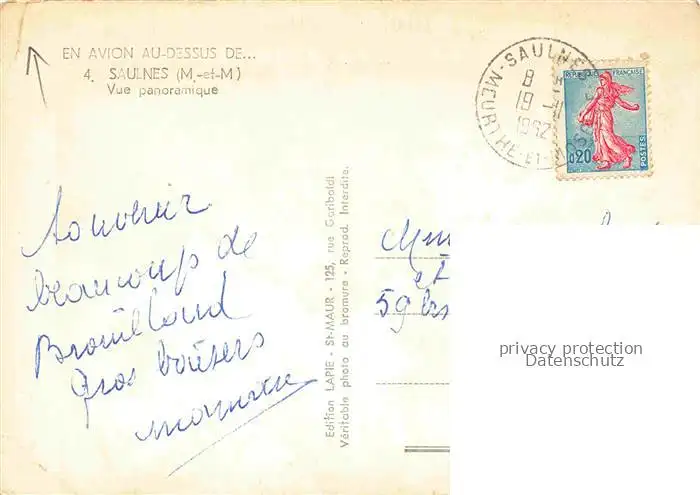 EN AVION AU-DESSUS DE...
4. SAULNES (M.-et-M)
Vue panoramique
SAULNES
8
19
1962
MEURTHE-ET-MOSELLE
REPUBLIQUE FRANÇAISE
0,20
POSTES
Souvenir
beaucoup de
Brouillard
Gros baisers
Edition LAPIE - St-MAUR - 125, rue Garibaldi
Véritable photo au bromure - Reprod. Interdite.
et
59 bis
privacy protection
Datenschutz